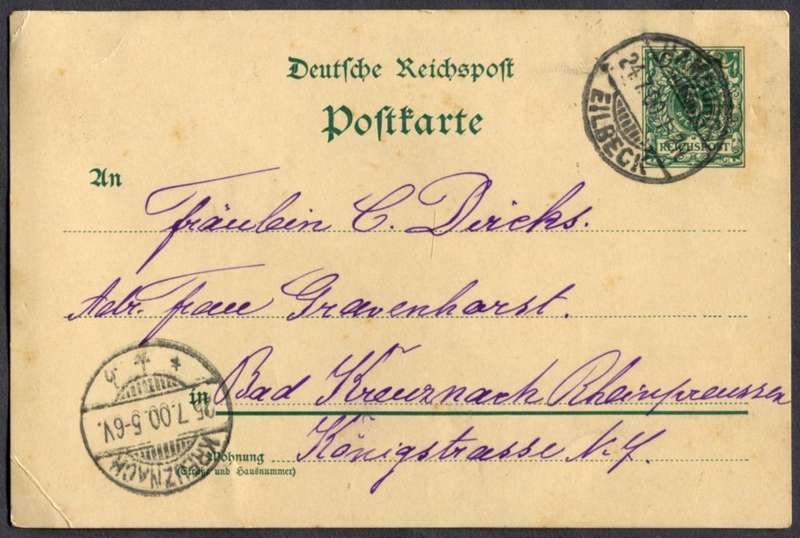 Deutsche Reichspost
Postkarte
REICHSPOST
HAMBURG
24.7.00
EILBECK
An
Fräulein C. Dircks.
Adr. Frau Gravenhorst.
in Bad Kreuznach Rheinpreussen
Königstrasse N. 7.
Wohnung
(Straße und Hausnummer)
25.7.00.5-6V.
KREUZNACH